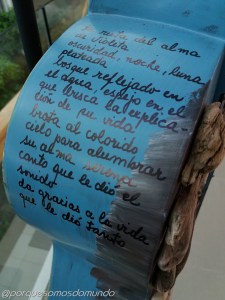 nota del alma
de Violeta
oscuridad, noche, luna
plateada
bosque reflejado en
el agua, espejo en el
que busca la explica-
ción de su vida
brota al colorido
cielo para alumbrar
su alma serena
canto que le dio el
sonido
da gracias a la vida
que le dió tanto
@porquesomosdomundo